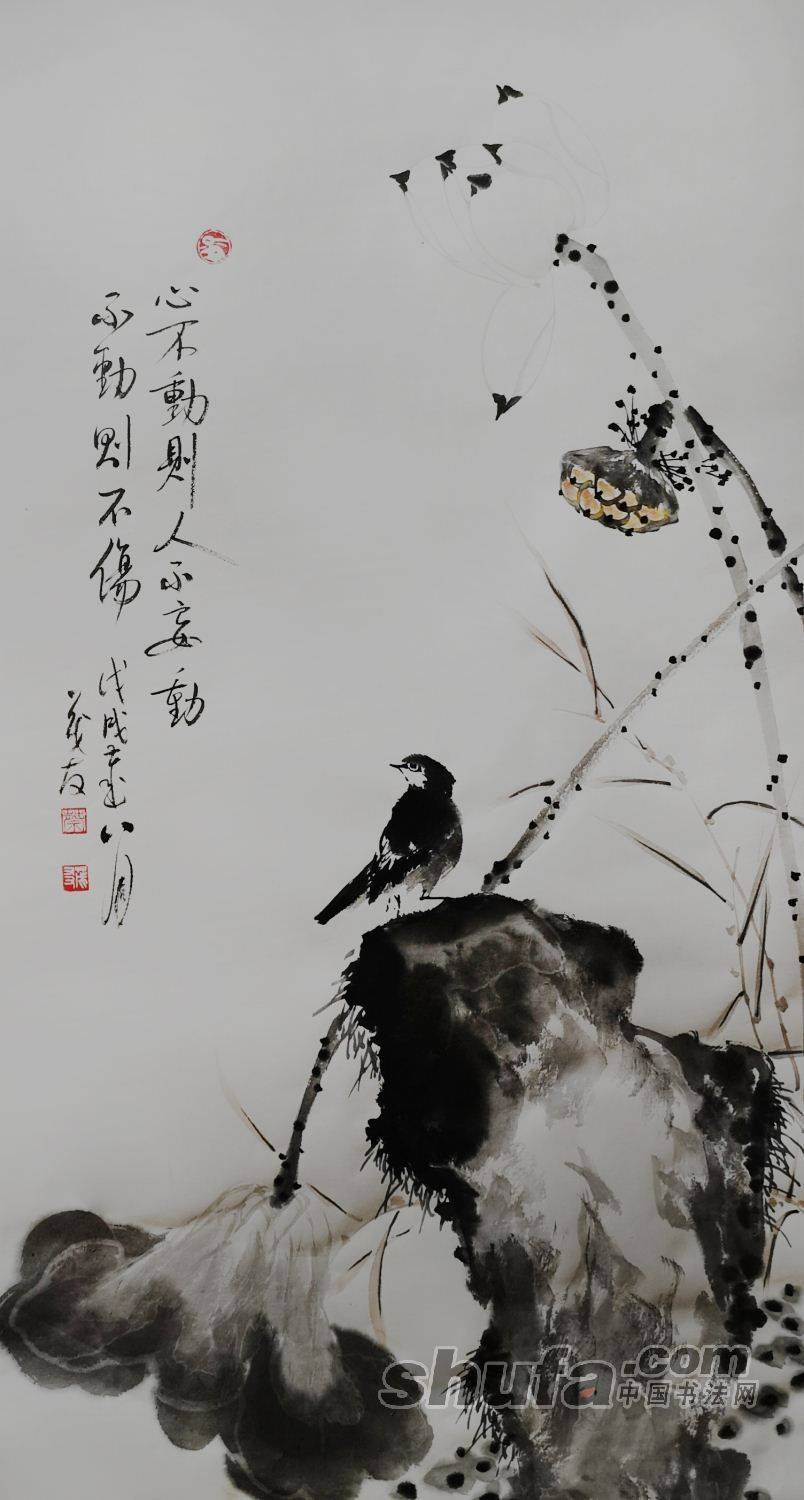 心不動則人不妄動
不動則不傷
戊戌年八月
義友
shufa.com
中国书法网